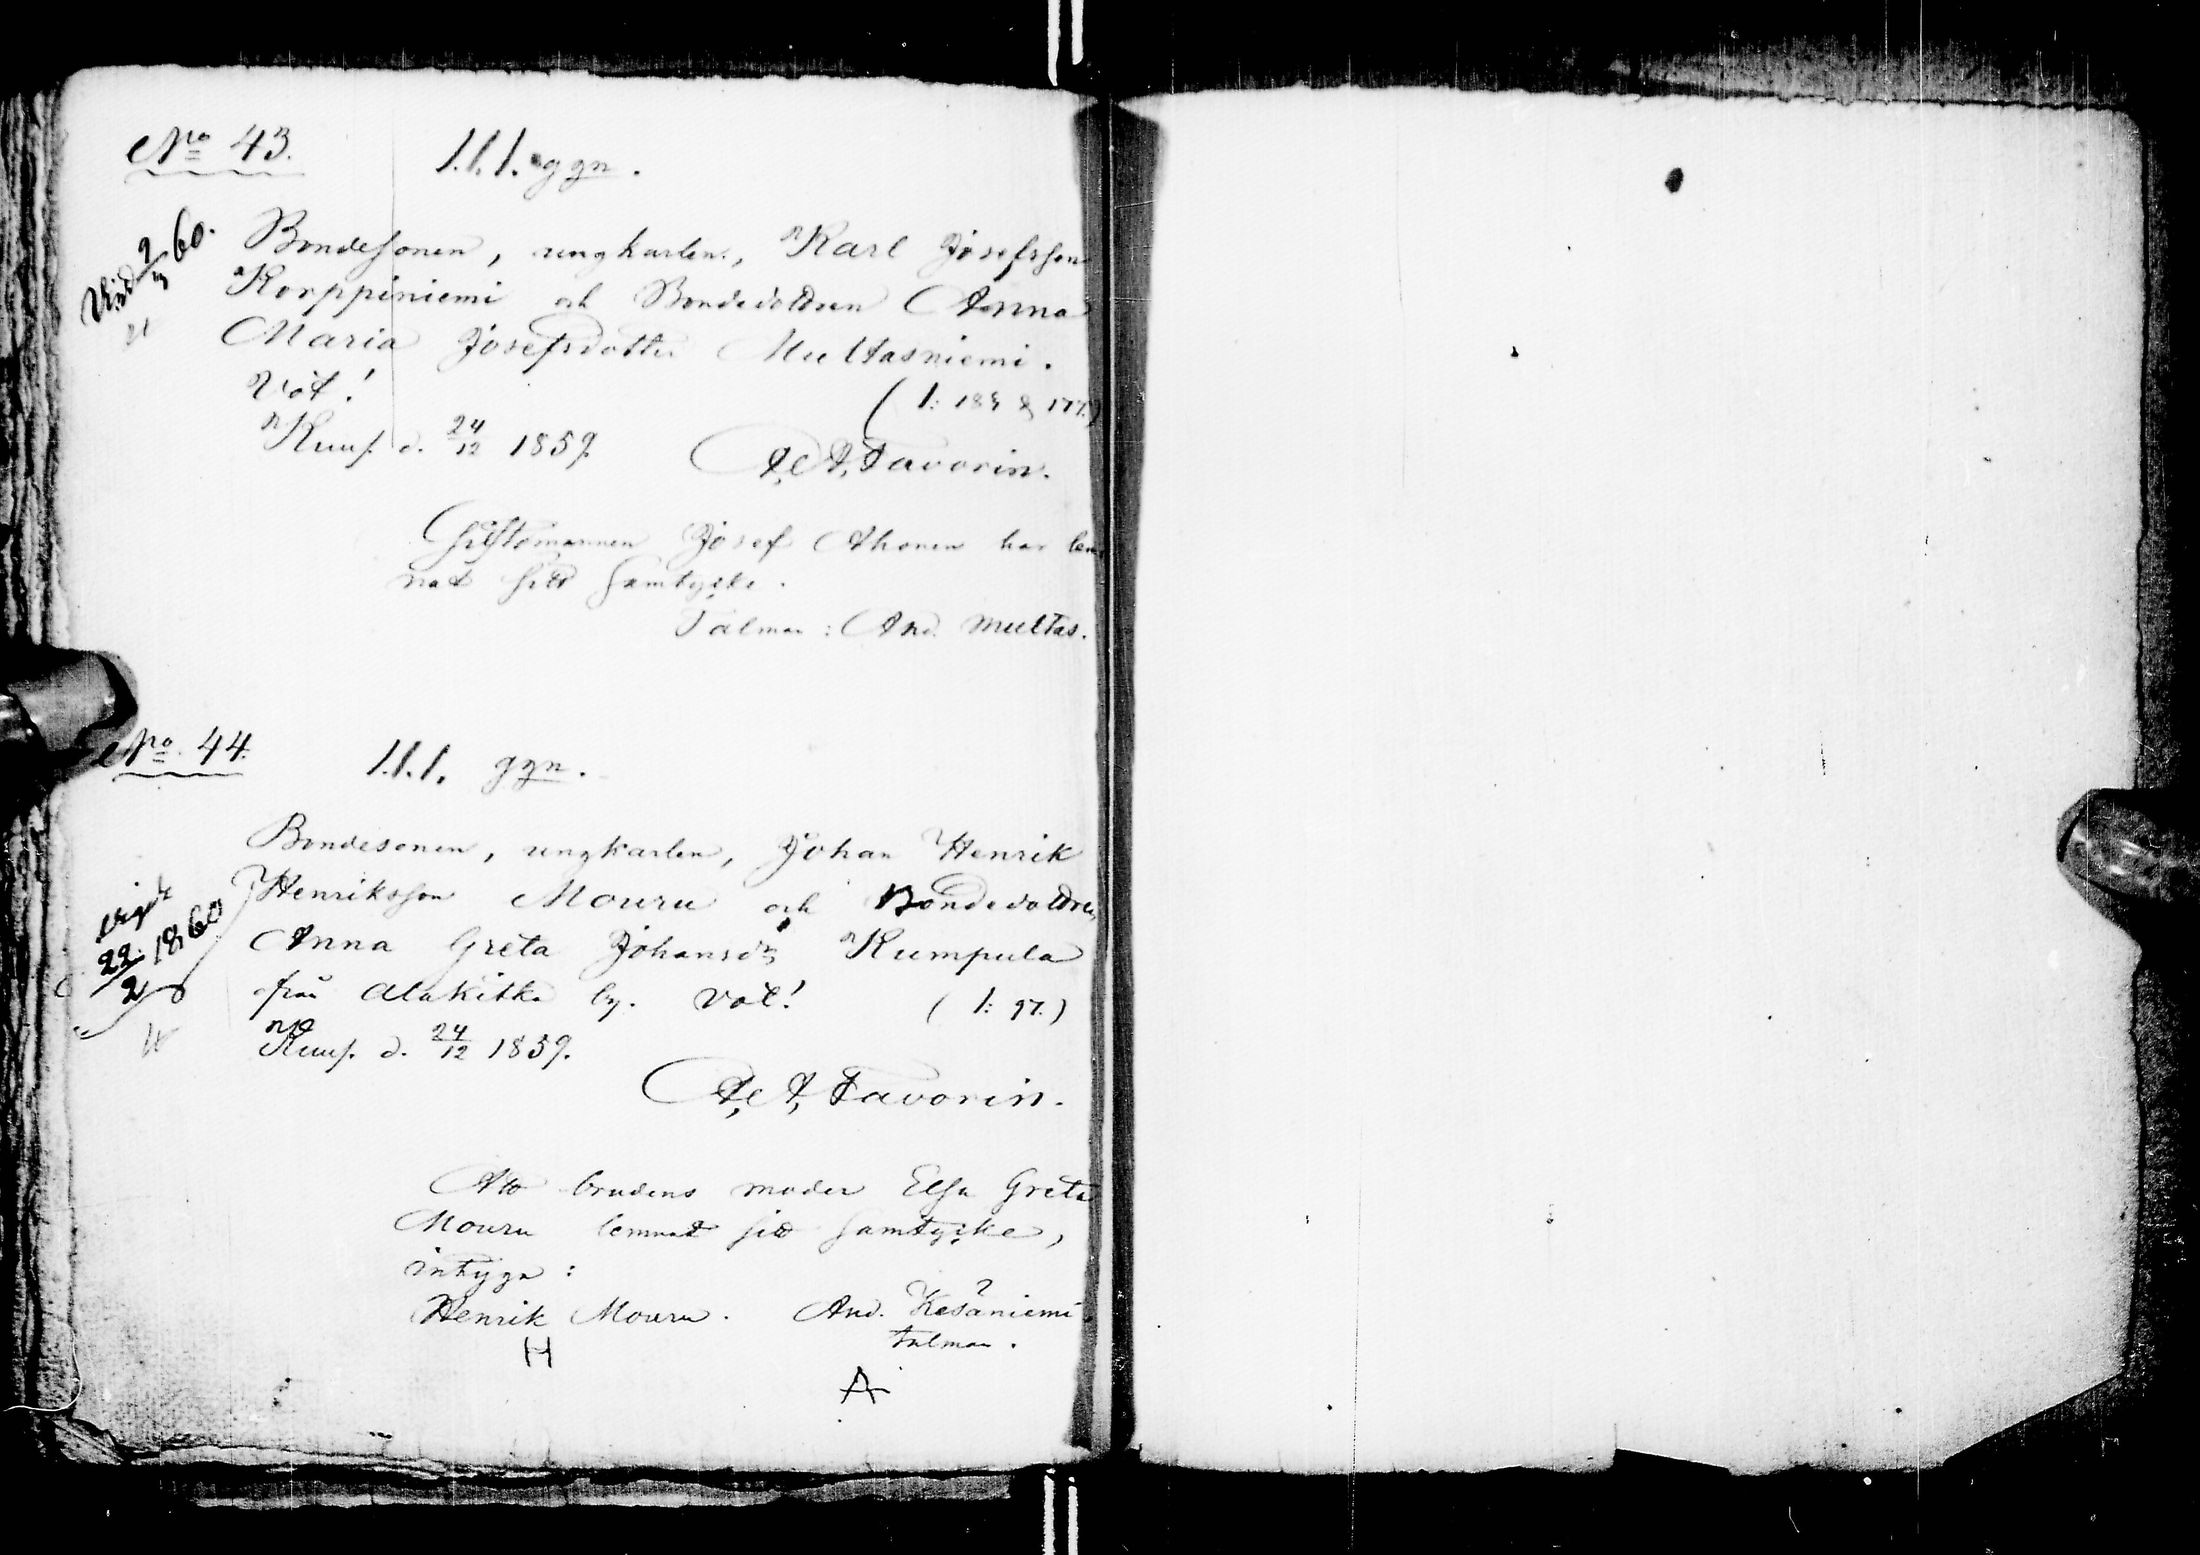 No 43.
1.1.1. ggn.
Vigd 2/3 60.
Bondesonen, ungkarlen, Karl Josefsson
Korppiniemi och Bondedottren Anna
Maria Josefsdotter Multasniemi.
Väl!
(1: 185 & 177.)
Kuus. d. 24/12 1859.
A. Favorin.
Giftomannen Josef Ahonen har lem
nat sitt samtycke.
Talman: And. Multas.
No. 44.
1.1.1. ggn.
Bondesonen, ungkarlen, Johan Henrik
Henriksson Mouru och Bondedottren
vigde
22/2 1860
Anna Greta Johansdr Kumpula
från Alakitka by. Väl! (1: 97.)
Kuus. d. 24/12 1859.
A. Favorin.
Att brudens moder Elsa Greta
Mouru lemnat sitt samtycke,
intyga:
Henrik Mouru. And. Kesäniemi
talman.
H
A